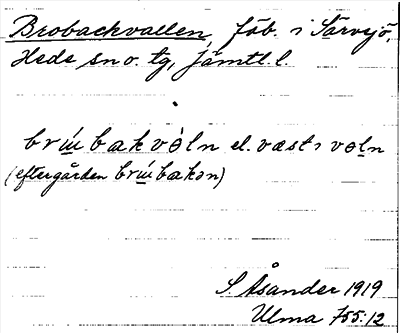 Brobackvallen, fäb. i Särvsjö,
Hede sn o. tg, Jämtl. l.
brɯ́bakvòln el. væstɩ voln
(efter gården brɯ́bakən)
S. Åsander 1919
Ulma 755:12